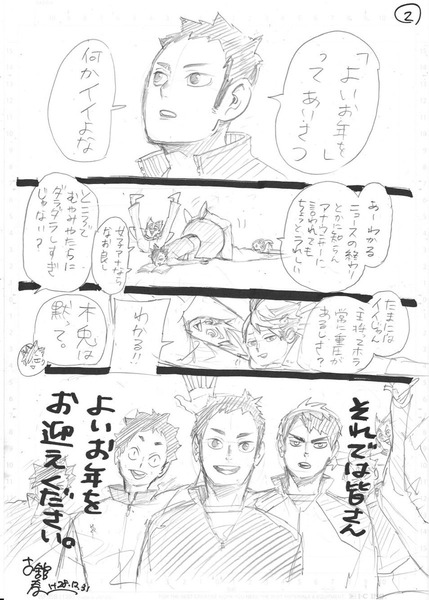 2
「よいお年を」
って あいさつ
何かイイよな
あーわかる
ニュースの終わり
とかに知らん
アナウンサーに
言われても
ちょっとうれしい
女子アナなら
なお良し
ところで
むやみやたらに
ダラダラしすぎ
じゃない？
たまには
イイじゃん
主将ってホラ
常に重圧が
わかる!!
木兎は
黙って。
それでは皆さん
よいお年を
お迎えください。
H28.12.31